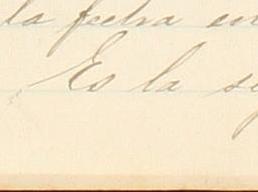 la fecha en
Es la se